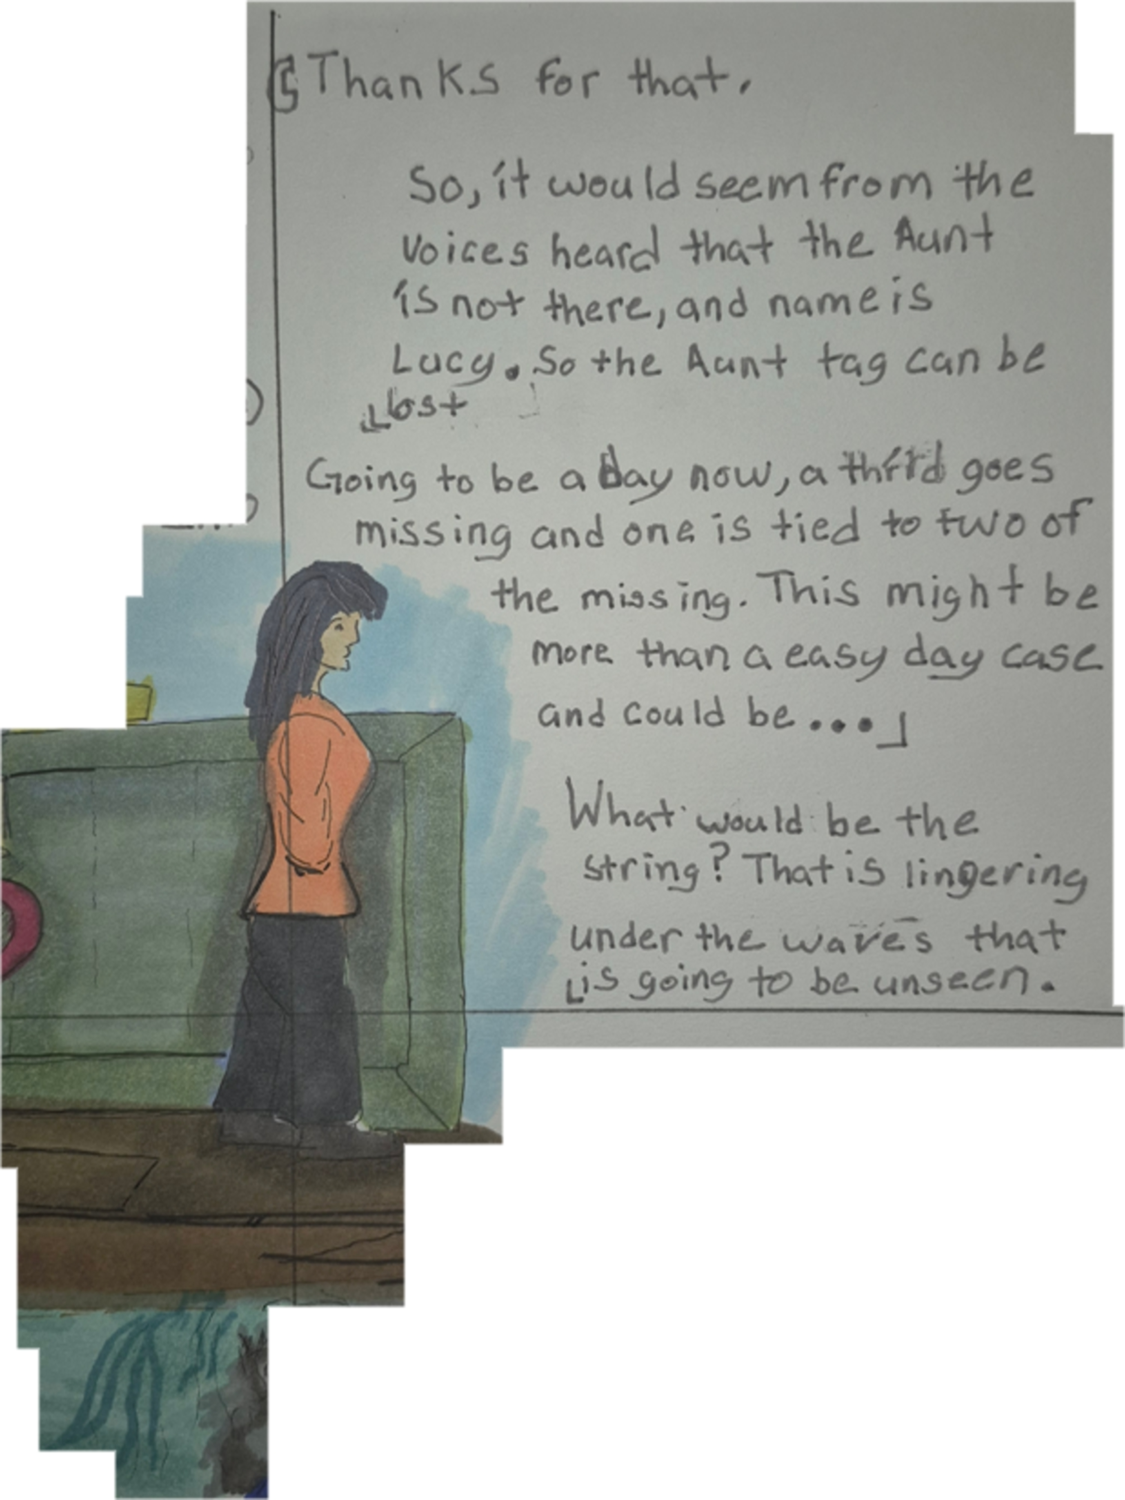 Thanks for that.
So, it would seem from the
voices heard that the Aunt
is not there, and name is
Lucy. So the Aunt tag can be
lost
Going to be a day now, a third goes
missing and one is tied to two of
the missing. This might be
more than a easy day case
and could be...
What would be the
string? That is lingering
under the waves that
is going to be unseen.